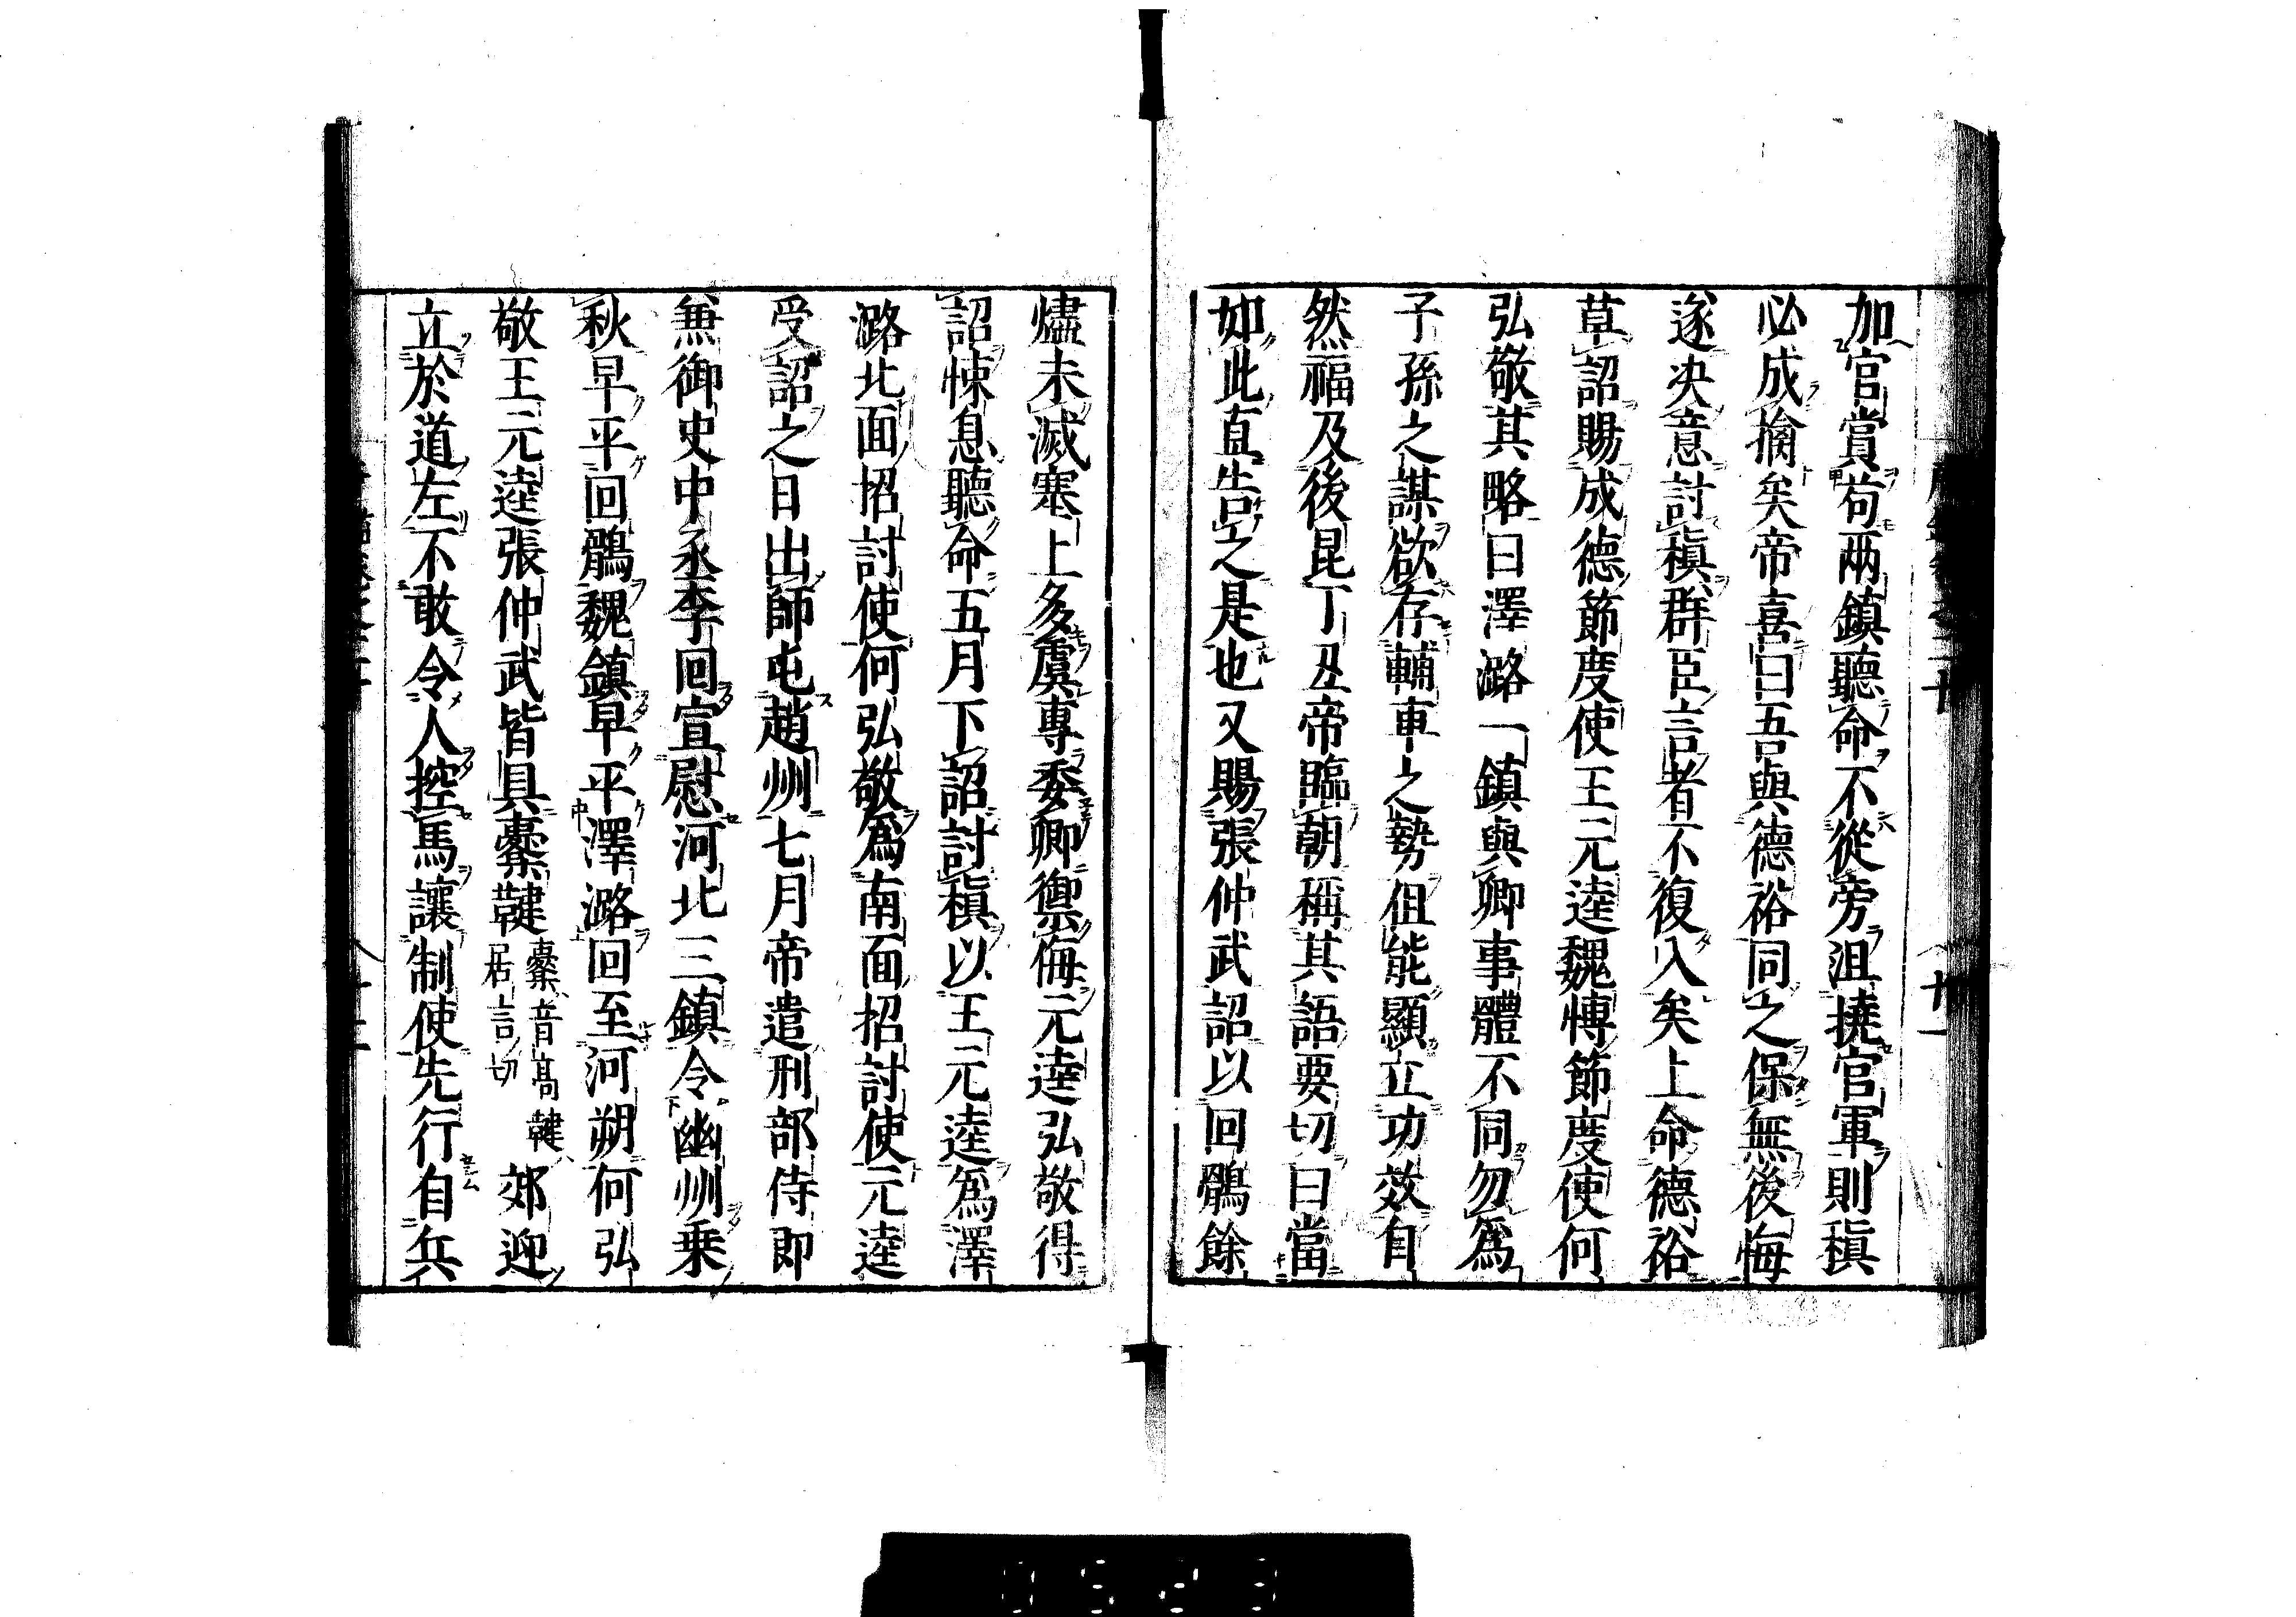 加官賞苟兩鎮聽命不從旁沮撓官軍則稹
必成擒矣帝喜曰吾與德裕同之保無後悔
遂決意討稹群臣言者不復入矣上命德裕
草詔賜成德節度使王元逵魏博節度使何
弘敬其略曰澤潞一鎮與卿事體不同勿為
子孫之謀欲存輔車之勢但能顯立功效自
然福及後昆丁丑帝臨朝稱其語要切曰當
如此直告之是也又賜張仲武詔以回鶻餘
燼未滅塞上多虞專委卿禦侮元逵弘敬得
詔悚息聽命五月下詔討稹以王元逵為澤
潞北面招討使何弘敬爲南面招討使元逵
受詔之日出師屯趙州七月帝遣刑部侍郎
兼御史中丞李回宣慰河北三鎮令幽州乗
秋早平回鶻魏鎮早平澤潞回至河朔何弘
敬王元逵張仲武皆具櫜鞬櫜音高鞬居言切郊迎
立於道左不敢令人控馬讓制使先行自兵